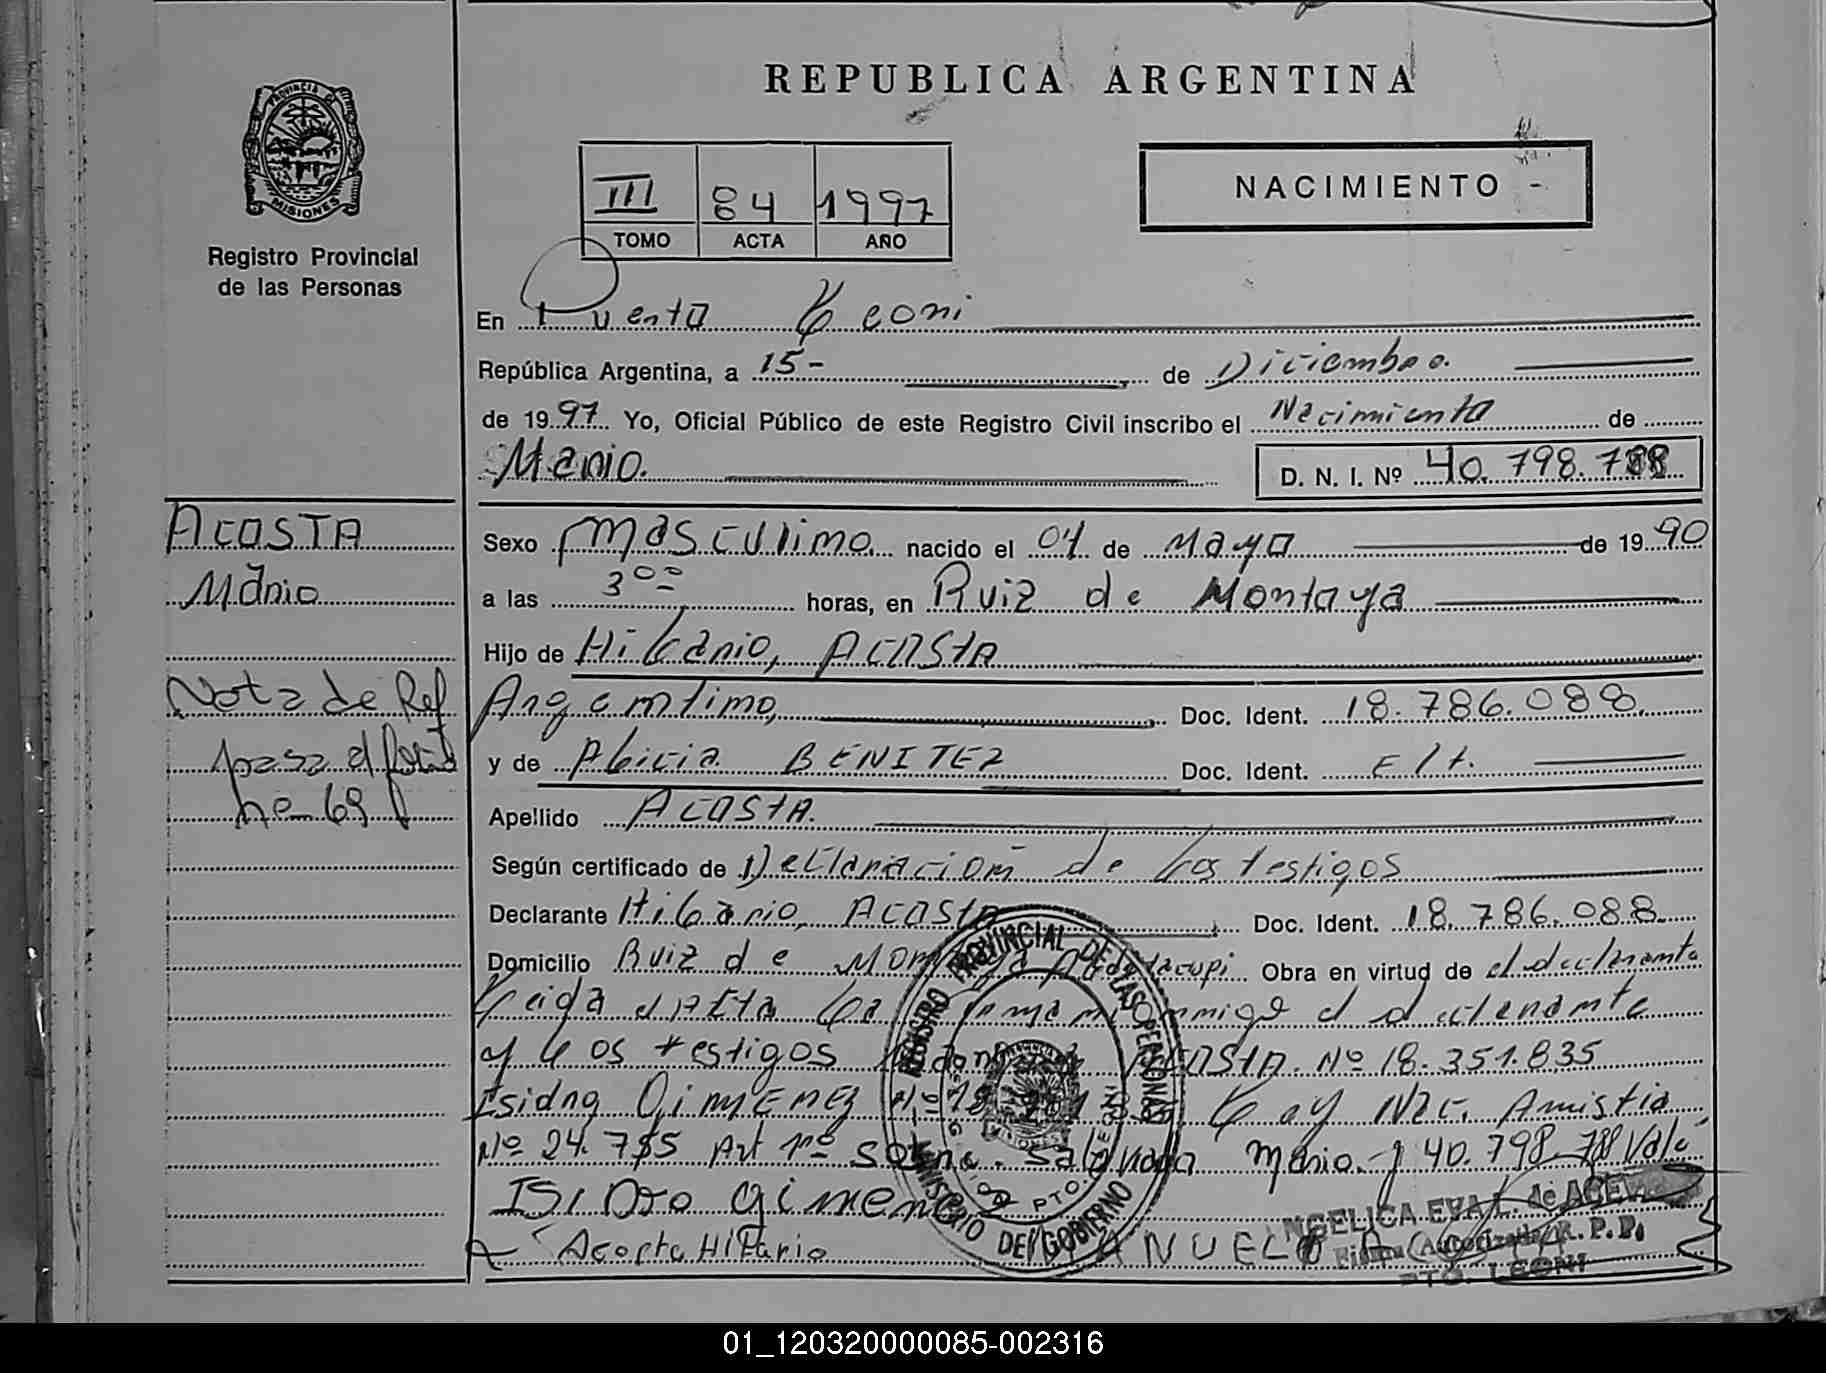 REPUBLICA ARGENTINA
PROVINCIA DE
MISIONES
Registro Provincial
de las Personas
III 84 1997
TOMO ACTA AÑO
NACIMIENTO -
En Puerto Leoni
República Argentina, a 15- de Diciembre.
de 1997 Yo, Oficial Público de este Registro Civil inscribo el Nacimiento de
Mario. D. N. I. Nº 40.798.788
ACOSTA
Mario
Sexo masculino nacido el 01 de Mayo de 1990
a las 3 00 horas, en Ruiz de Montoya
Hijo de Hilario, ACOSTA
Argentino, Doc. Ident. 18.786.088.
y de Alicia BENITEZ Doc. Ident. E/t.
Nota de Ref
pasa al
69
Apellido ACOSTA.
Según certificado de Declaración de los testigos
Declarante Hilario, ACOSTA Doc. Ident. 18.786.088
Domicilio Ruiz de Montoya Obra en virtud de el declarante
Leida el Acta la firman conmigo el declarante
y los testigos ACOSTA. Nº 18.351.835
Isidro Gimenez Nº 18 Ley Nac. Amistia
Nº 24.755 Art 1º Mario. y 40.798.788 Vale
Isidro gimenez
Acosta Hilario
REGISTRO PROVINCIAL DE LAS PERSONAS
MINISTERIO DE GOBIERNO
MISIONES
ANGELICA EVA L. de ACEV
Firma Autorizada R. P. P.
PTO. LEONI
01_120320000085-002316